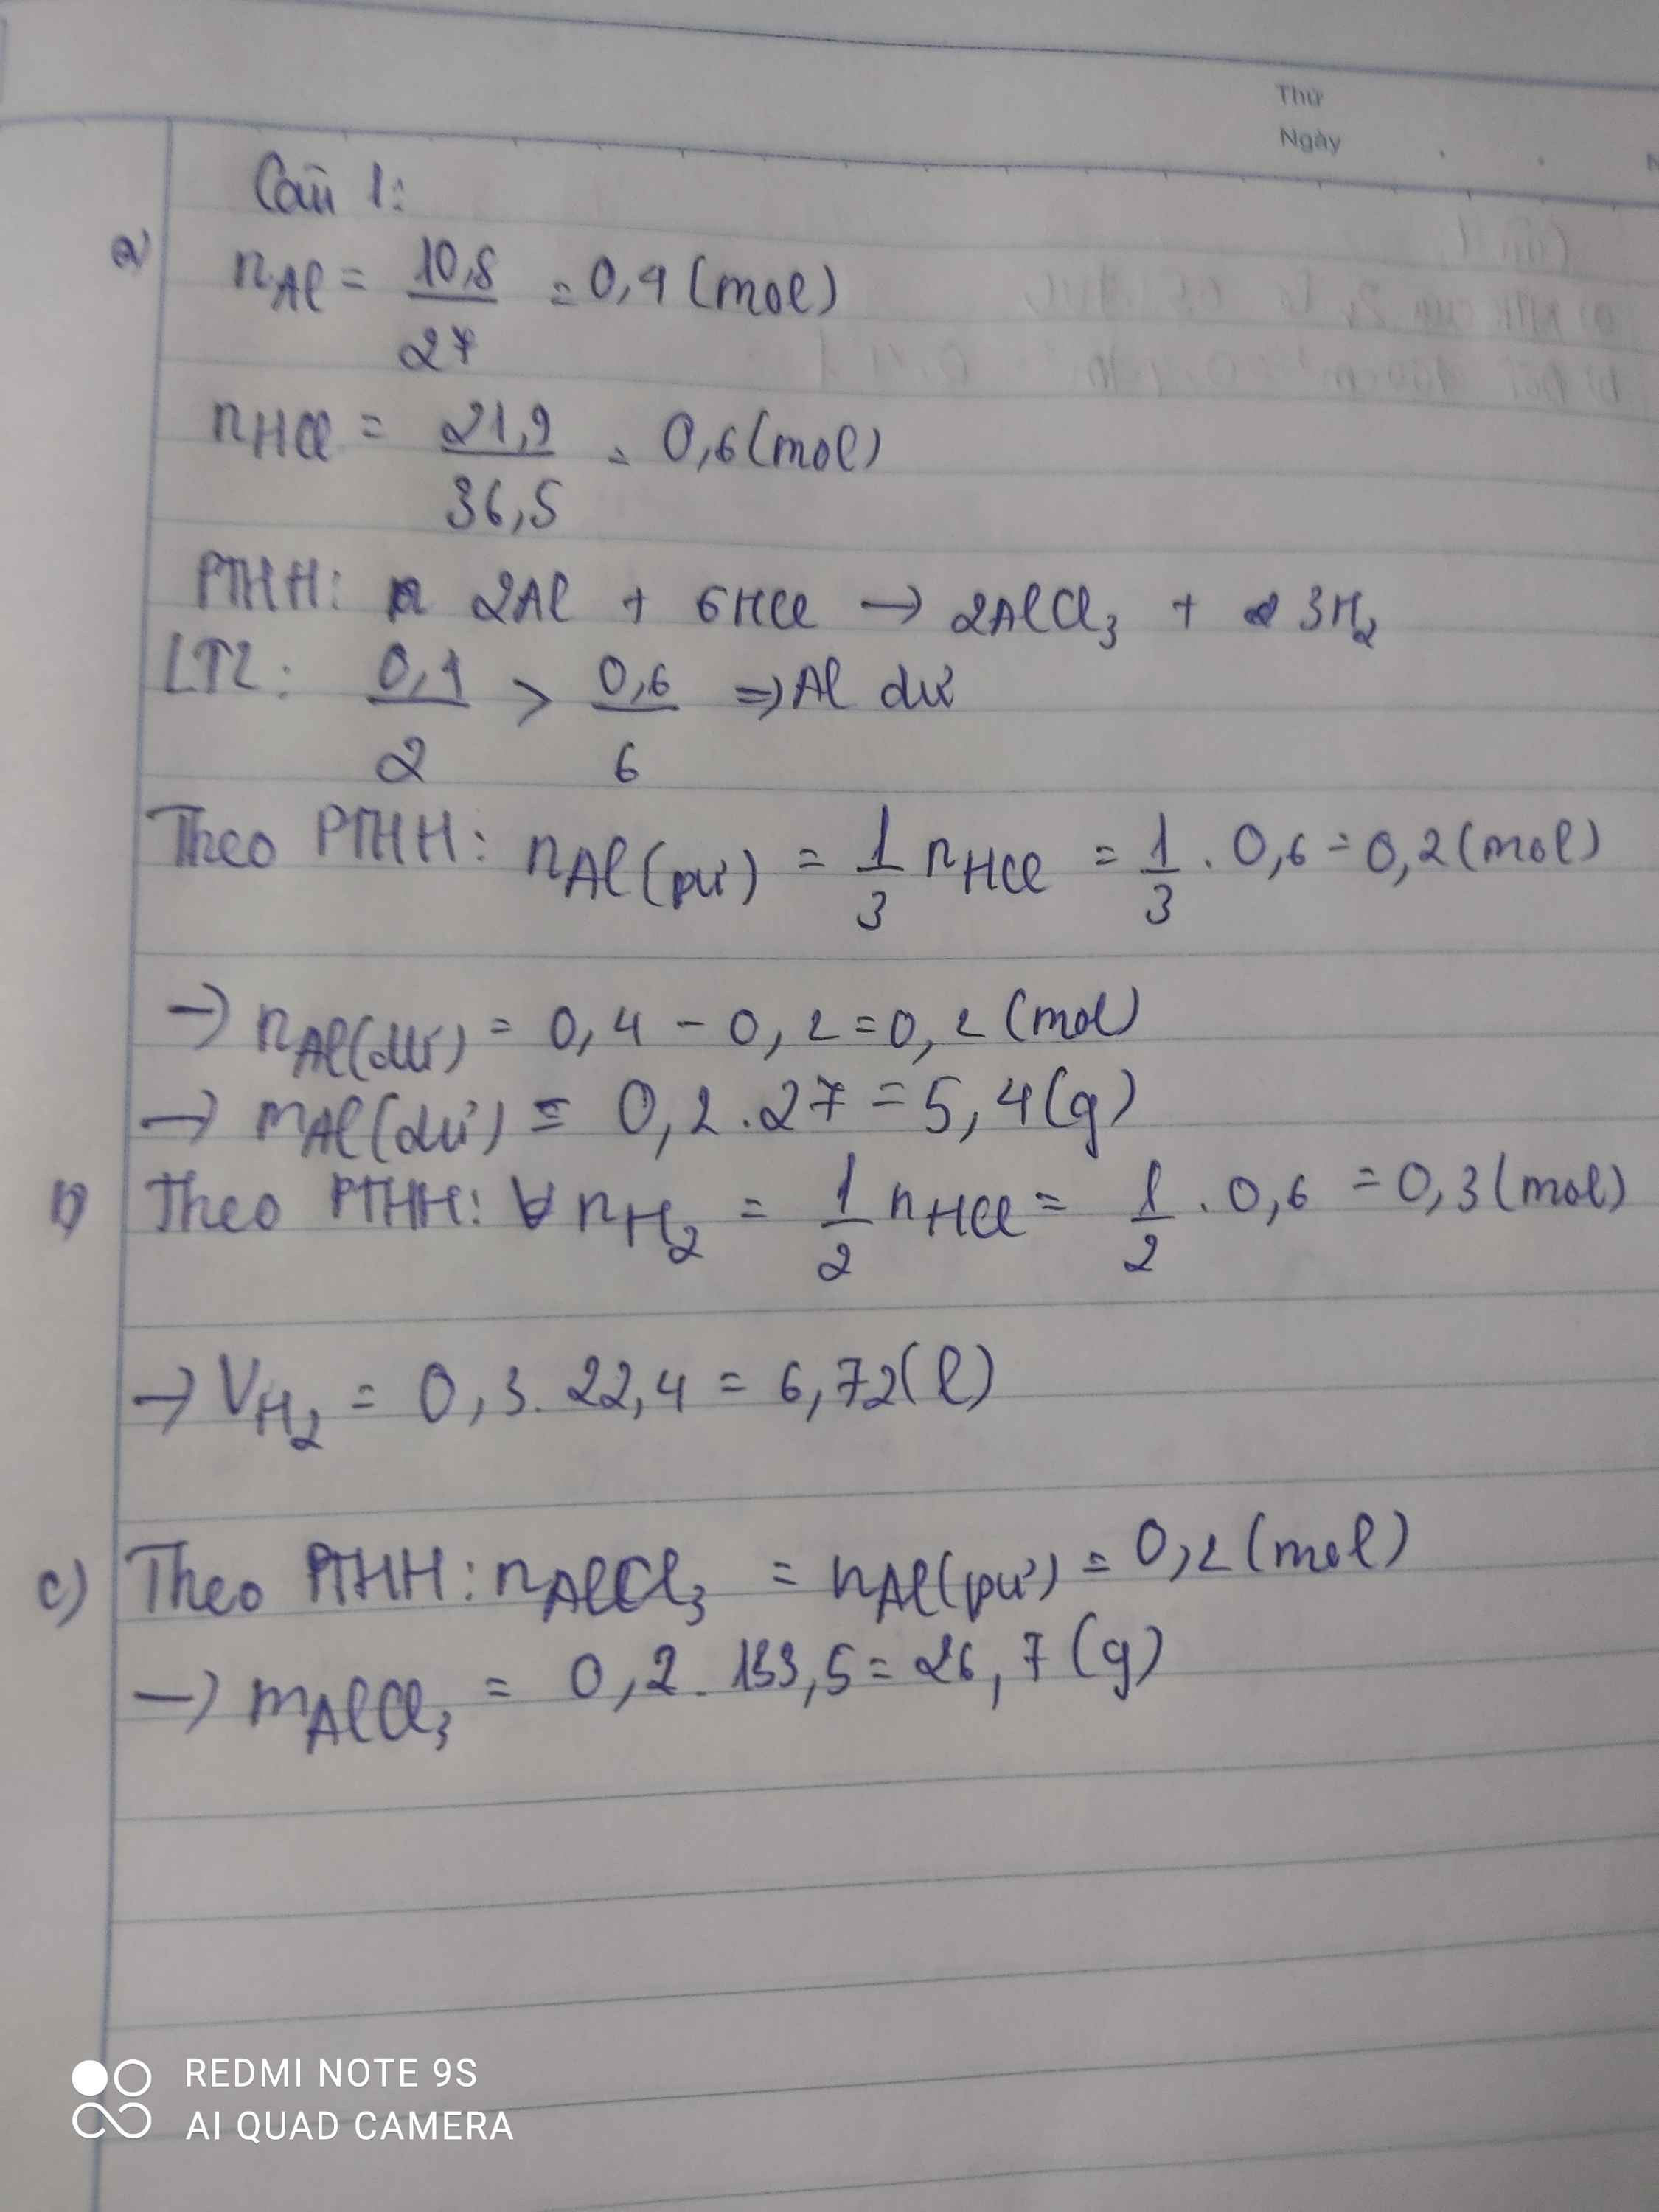 Thứ
Ngày
Câu 1:
a) nAl = 10,8/27 = 0,4 (mol)
nHCl = 21,9/36,5 = 0,6 (mol)
PTHH: 2Al + 6HCl → 2AlCl₃ + 3H₂
LTL: 0,4/2 > 0,6/6 ⇒ Al dư
Theo PTHH: nAl(pứ) = 1/3 nHCl = 1/3 . 0,6 = 0,2 (mol)
→ nAl(dư) = 0,4 - 0,2 = 0,2 (mol)
→ mAl(dư) = 0,2 . 27 = 5,4 (g)
b) Theo PTHH: nH₂ = 1/2 nHCl = 1/2 . 0,6 = 0,3 (mol)
→ VH₂ = 0,3 . 22,4 = 6,72 (l)
c) Theo PTHH: nAlCl₃ = nAl(pứ) = 0,2 (mol)
→ mAlCl₃ = 0,2 . 133,5 = 26,7 (g)
REDMI NOTE 9S
AI QUAD CAMERA